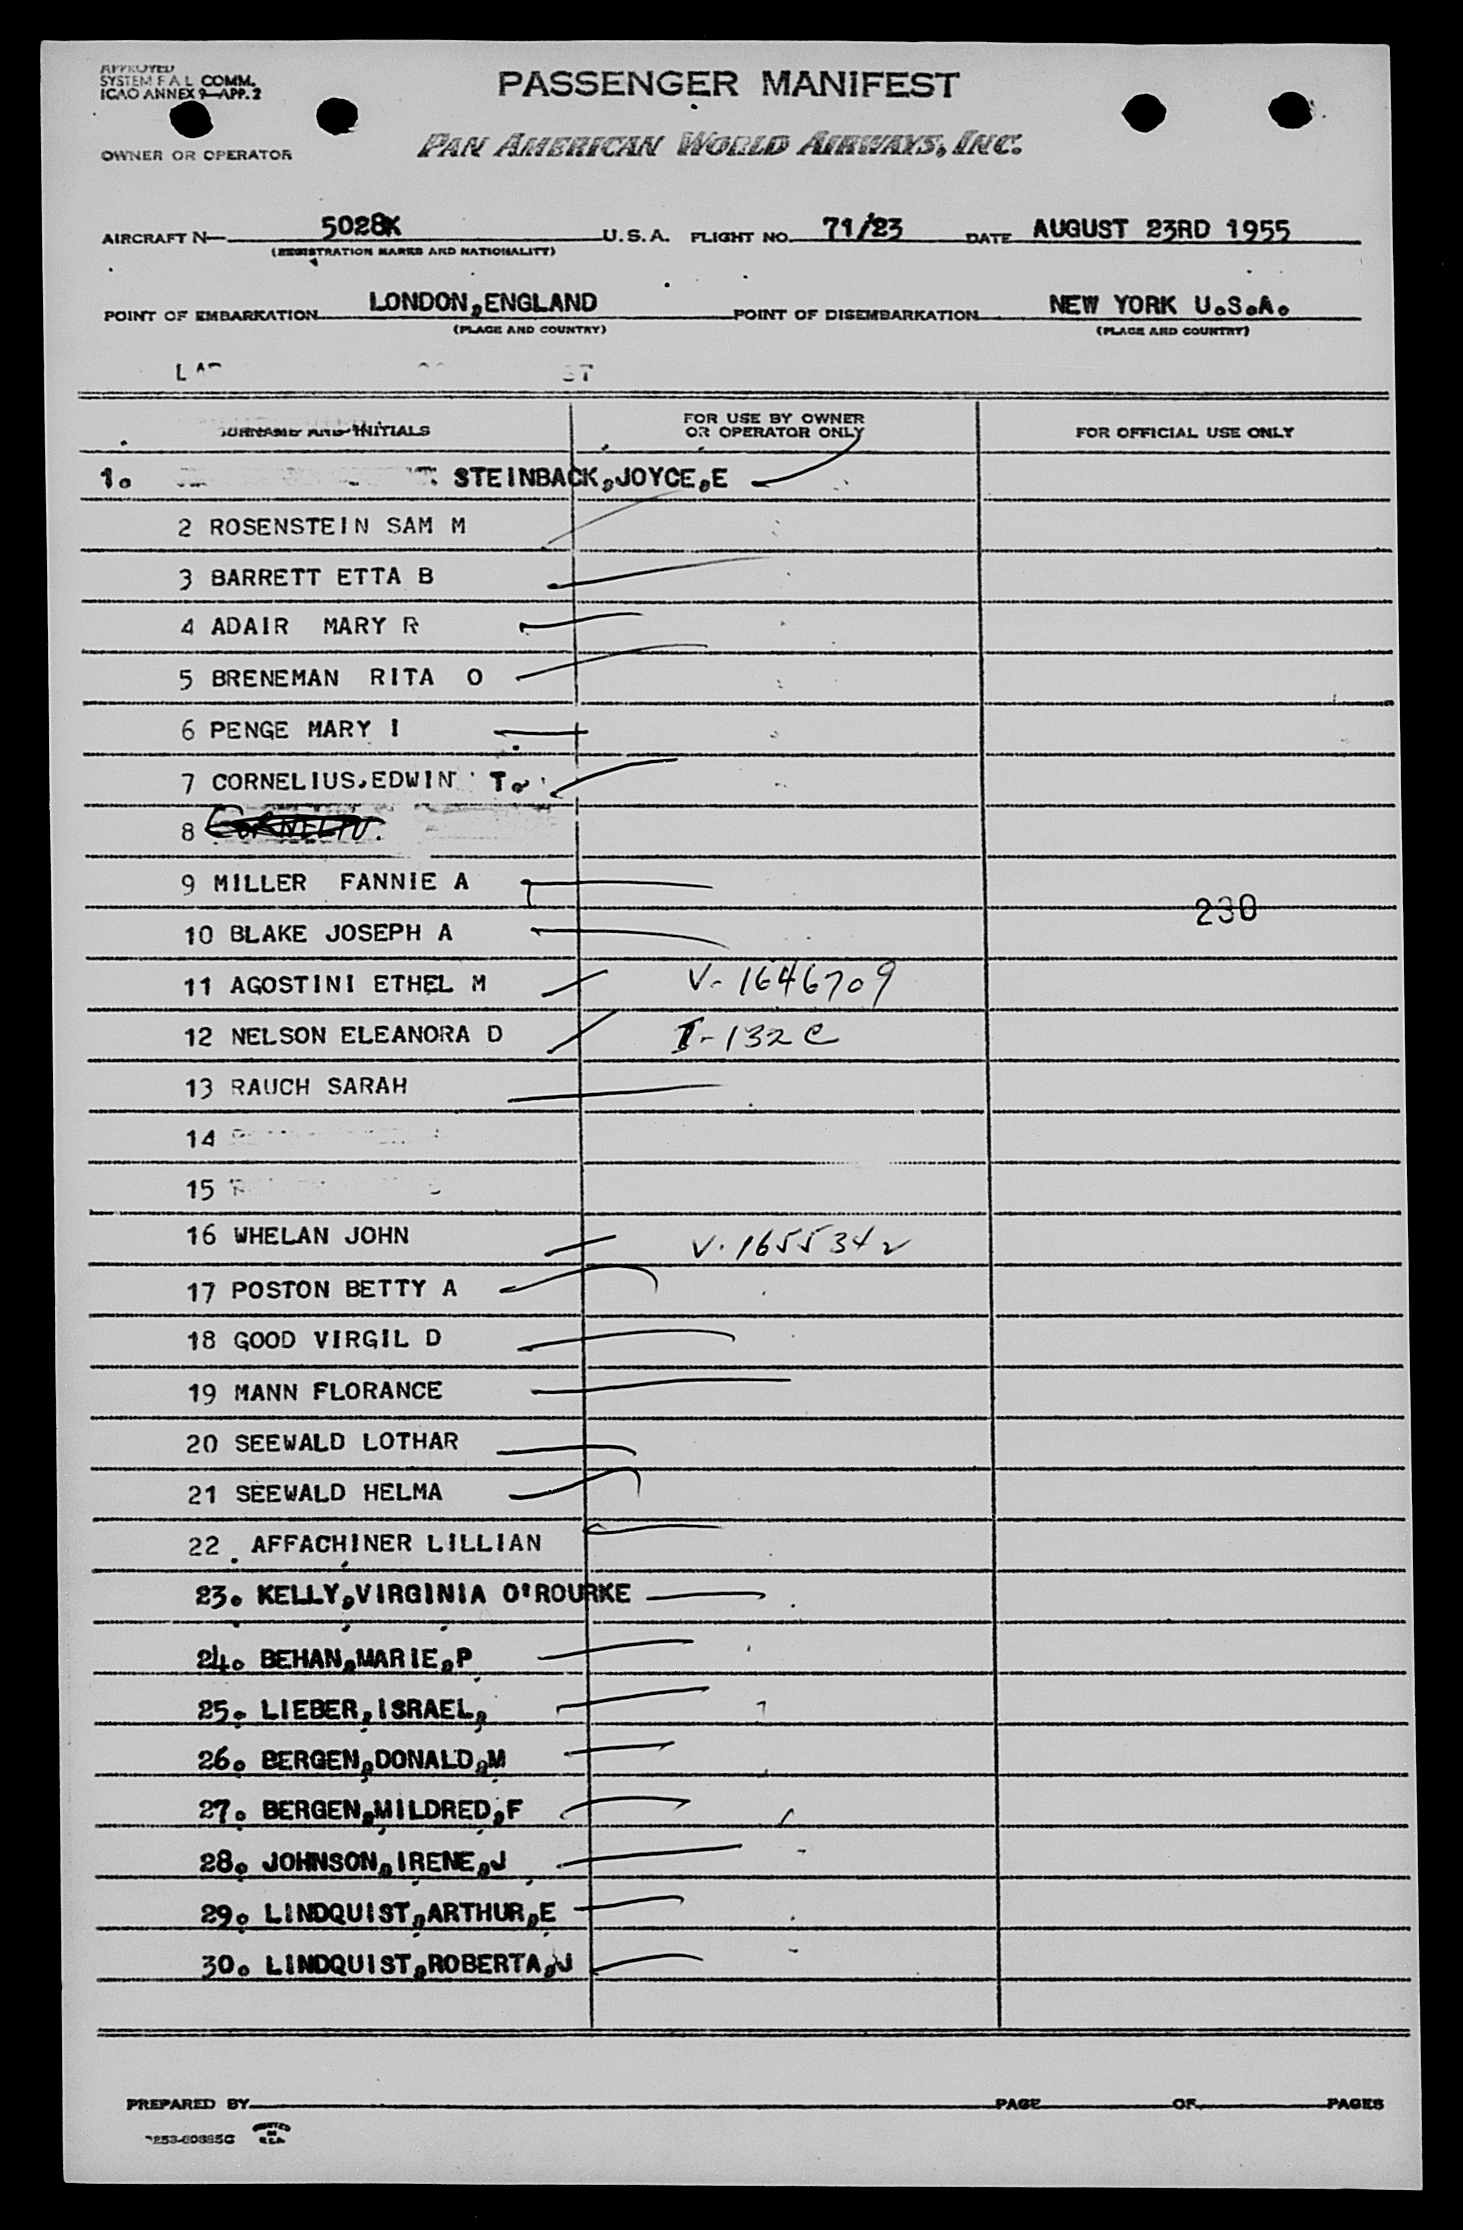 APPROVED
SYSTEM F A L COMM.
ICAO ANNEX 9—APP. 2
PASSENGER MANIFEST
OWNER OR OPERATOR
PAN AMERICAN WORLD AIRWAYS, INC.
AIRCRAFT N— 5028K U.S.A. FLIGHT NO. 71/23 DATE AUGUST 23RD 1955
(REGISTRATION MARKS AND NATIONALITY)
POINT OF EMBARKATION LONDON,ENGLAND POINT OF DISEMBARKATION NEW YORK U.S.A.
(PLACE AND COUNTRY) (PLACE AND COUNTRY)
SURNAME AND INITIALS FOR USE BY OWNER OR OPERATOR ONLY FOR OFFICIAL USE ONLY
1. STEINBACK,JOYCE,E
2 ROSENSTEIN SAM M
3 BARRETT ETTA B
4 ADAIR MARY R
5 BRENEMAN RITA O
6 PENGE MARY I
7 CORNELIUS,EDWIN T.
8
9 MILLER FANNIE A
230
10 BLAKE JOSEPH A
11 AGOSTINI ETHEL M V-1646709
12 NELSON ELEANORA D I-132 C
13 RAUCH SARAH
14
15
16 WHELAN JOHN V-1655342
17 POSTON BETTY A
18 GOOD VIRGIL D
19 MANN FLORANCE
20 SEEWALD LOTHAR
21 SEEWALD HELMA
22 AFFACHINER LILLIAN
23. KELLY,VIRGINIA O'ROURKE
24. BEHAN,MARIE,P
25. LIEBER,ISRAEL,
26. BERGEN,DONALD,M
27. BERGEN,MILDRED,F
28. JOHNSON,IRENE,J
29. LINDQUIST,ARTHUR,E
30. LINDQUIST,ROBERTA,J
PREPARED BY PAGE OF PAGES
PRINTED IN U.S.A.